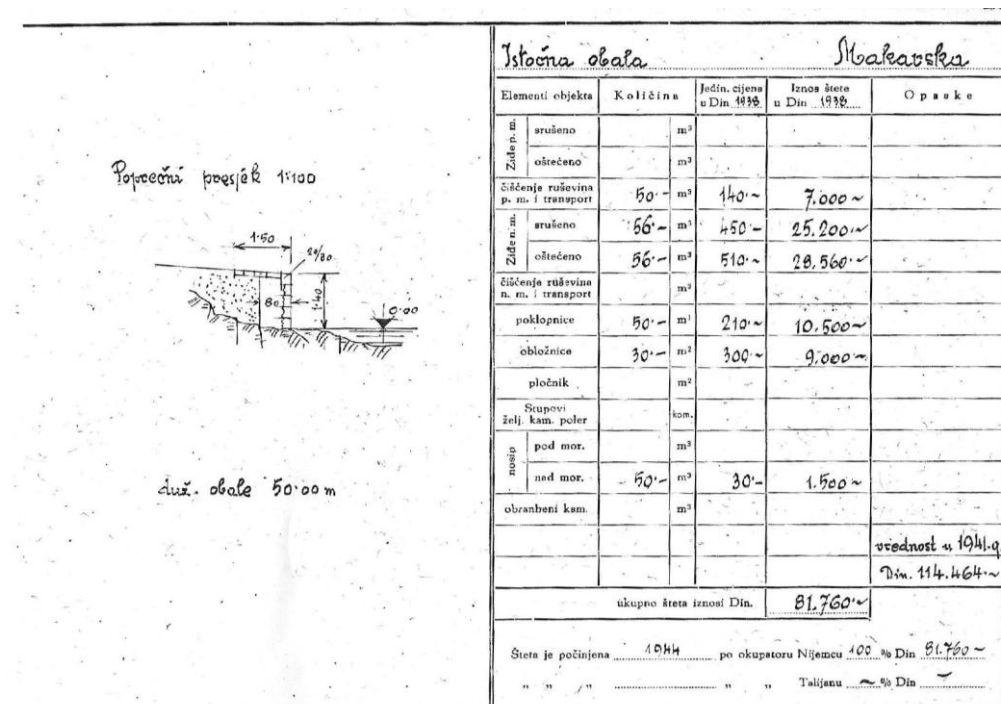 Poprečni presjek 1:100
1.50
20/80
80
1.40
0.00
duž. obale 50.00 m
Istočna obala Makarska
Elementi objekta Količina Jedin. cijena u Din 1938 Iznos štete u Din 1938 Opaske
Ziđe p. m. srušeno m³
oštećeno m³
čišćenje ruševina p. m. i transport 50.– m³ 140.~ 7.000 ~
Ziđe n. m. srušeno 56.– m³ 450.– 25.200.~
oštećeno 56.– m³ 510.~ 28.560.~
čišćenje ruševina n. m. i transport m³
poklopnice 50.– m¹ 210.~ 10.500 ~
obložnice 30.– m² 300.~ 9.000 ~
pločnik m²
Stupovi želj. kam. poler kom.
nosip pod mor. m³
nad mor. 50.– m³ 30.– 1.500 ~
obranbeni kam. m³
vrednost u 1941.g.
Din. 114.464.~
ukupno šteta iznosi Din. 81.760.~
Šteta je počinjena 1944 po okupatoru Nijemcu 100 % Din 81.760 ~
" " " " " Talijanu ~ % Din ~